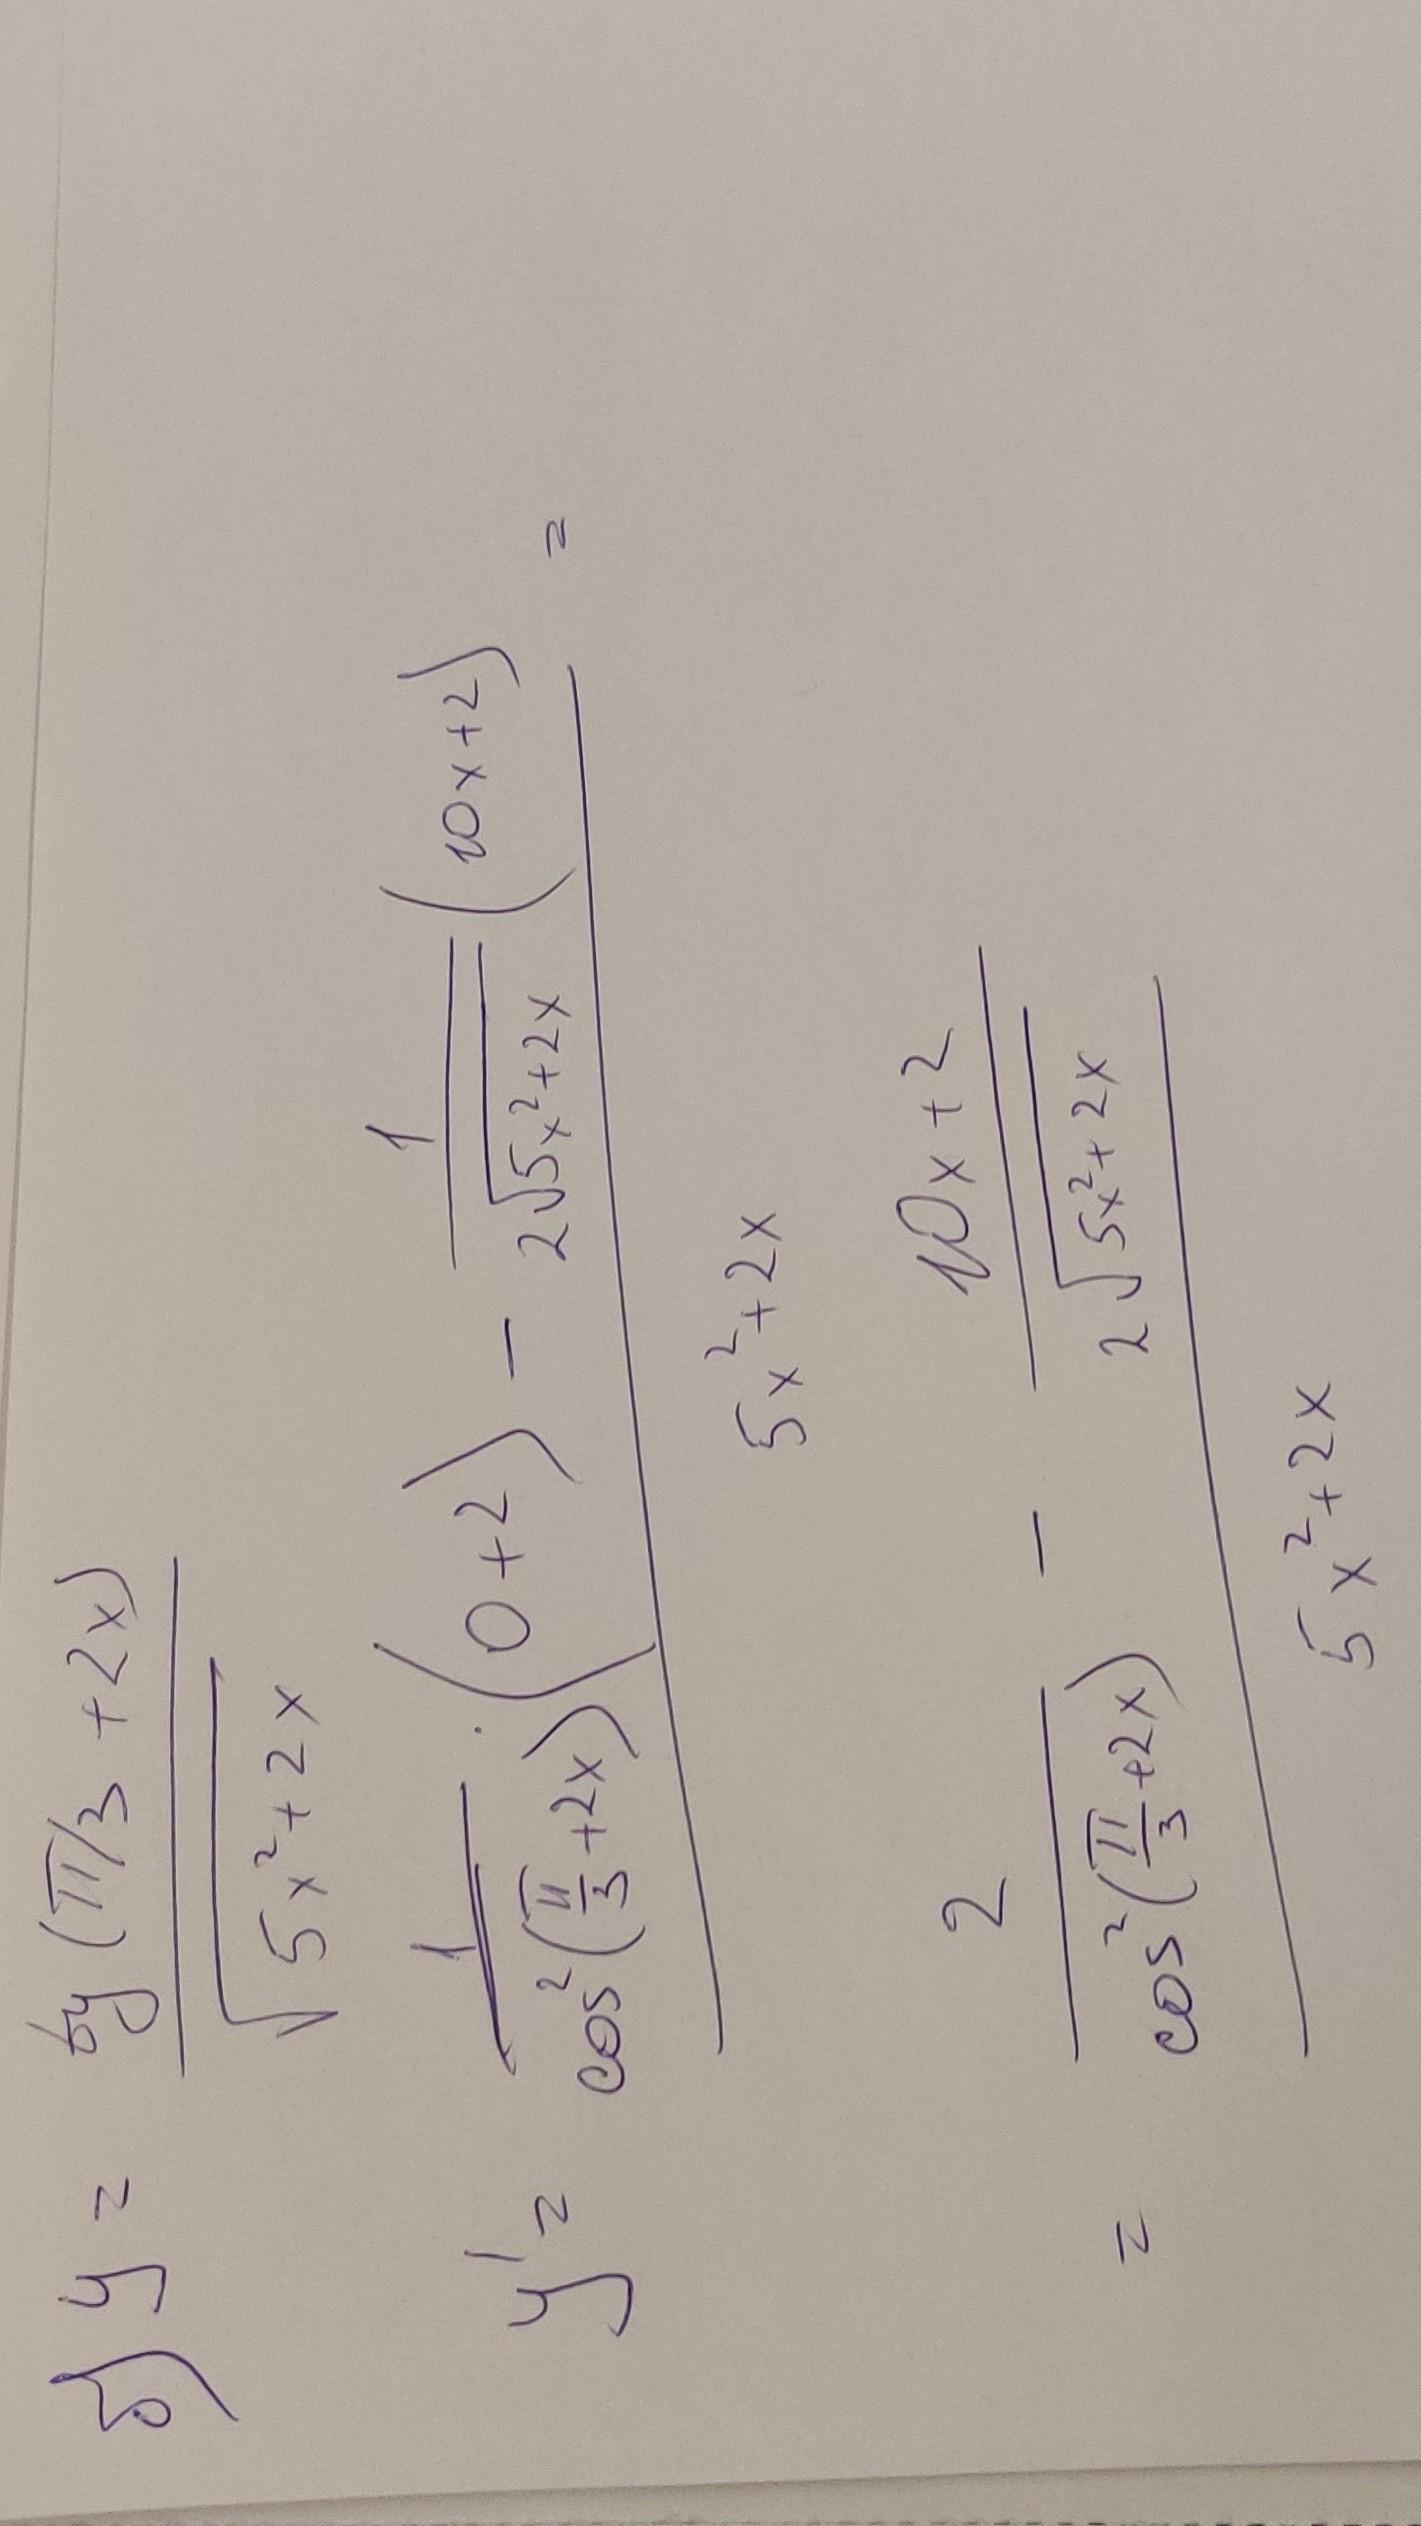 б) y = tg(π/3 + 2x) / √(5x² + 2x)
y' = (1 / cos²(π/3 + 2x) · (0 + 2) − 1 / (2√(5x² + 2x)) (10x + 2)) / (5x² + 2x) =
= (2 / cos²(π/3 + 2x) − (10x + 2) / (2√(5x² + 2x))) / (5x² + 2x)